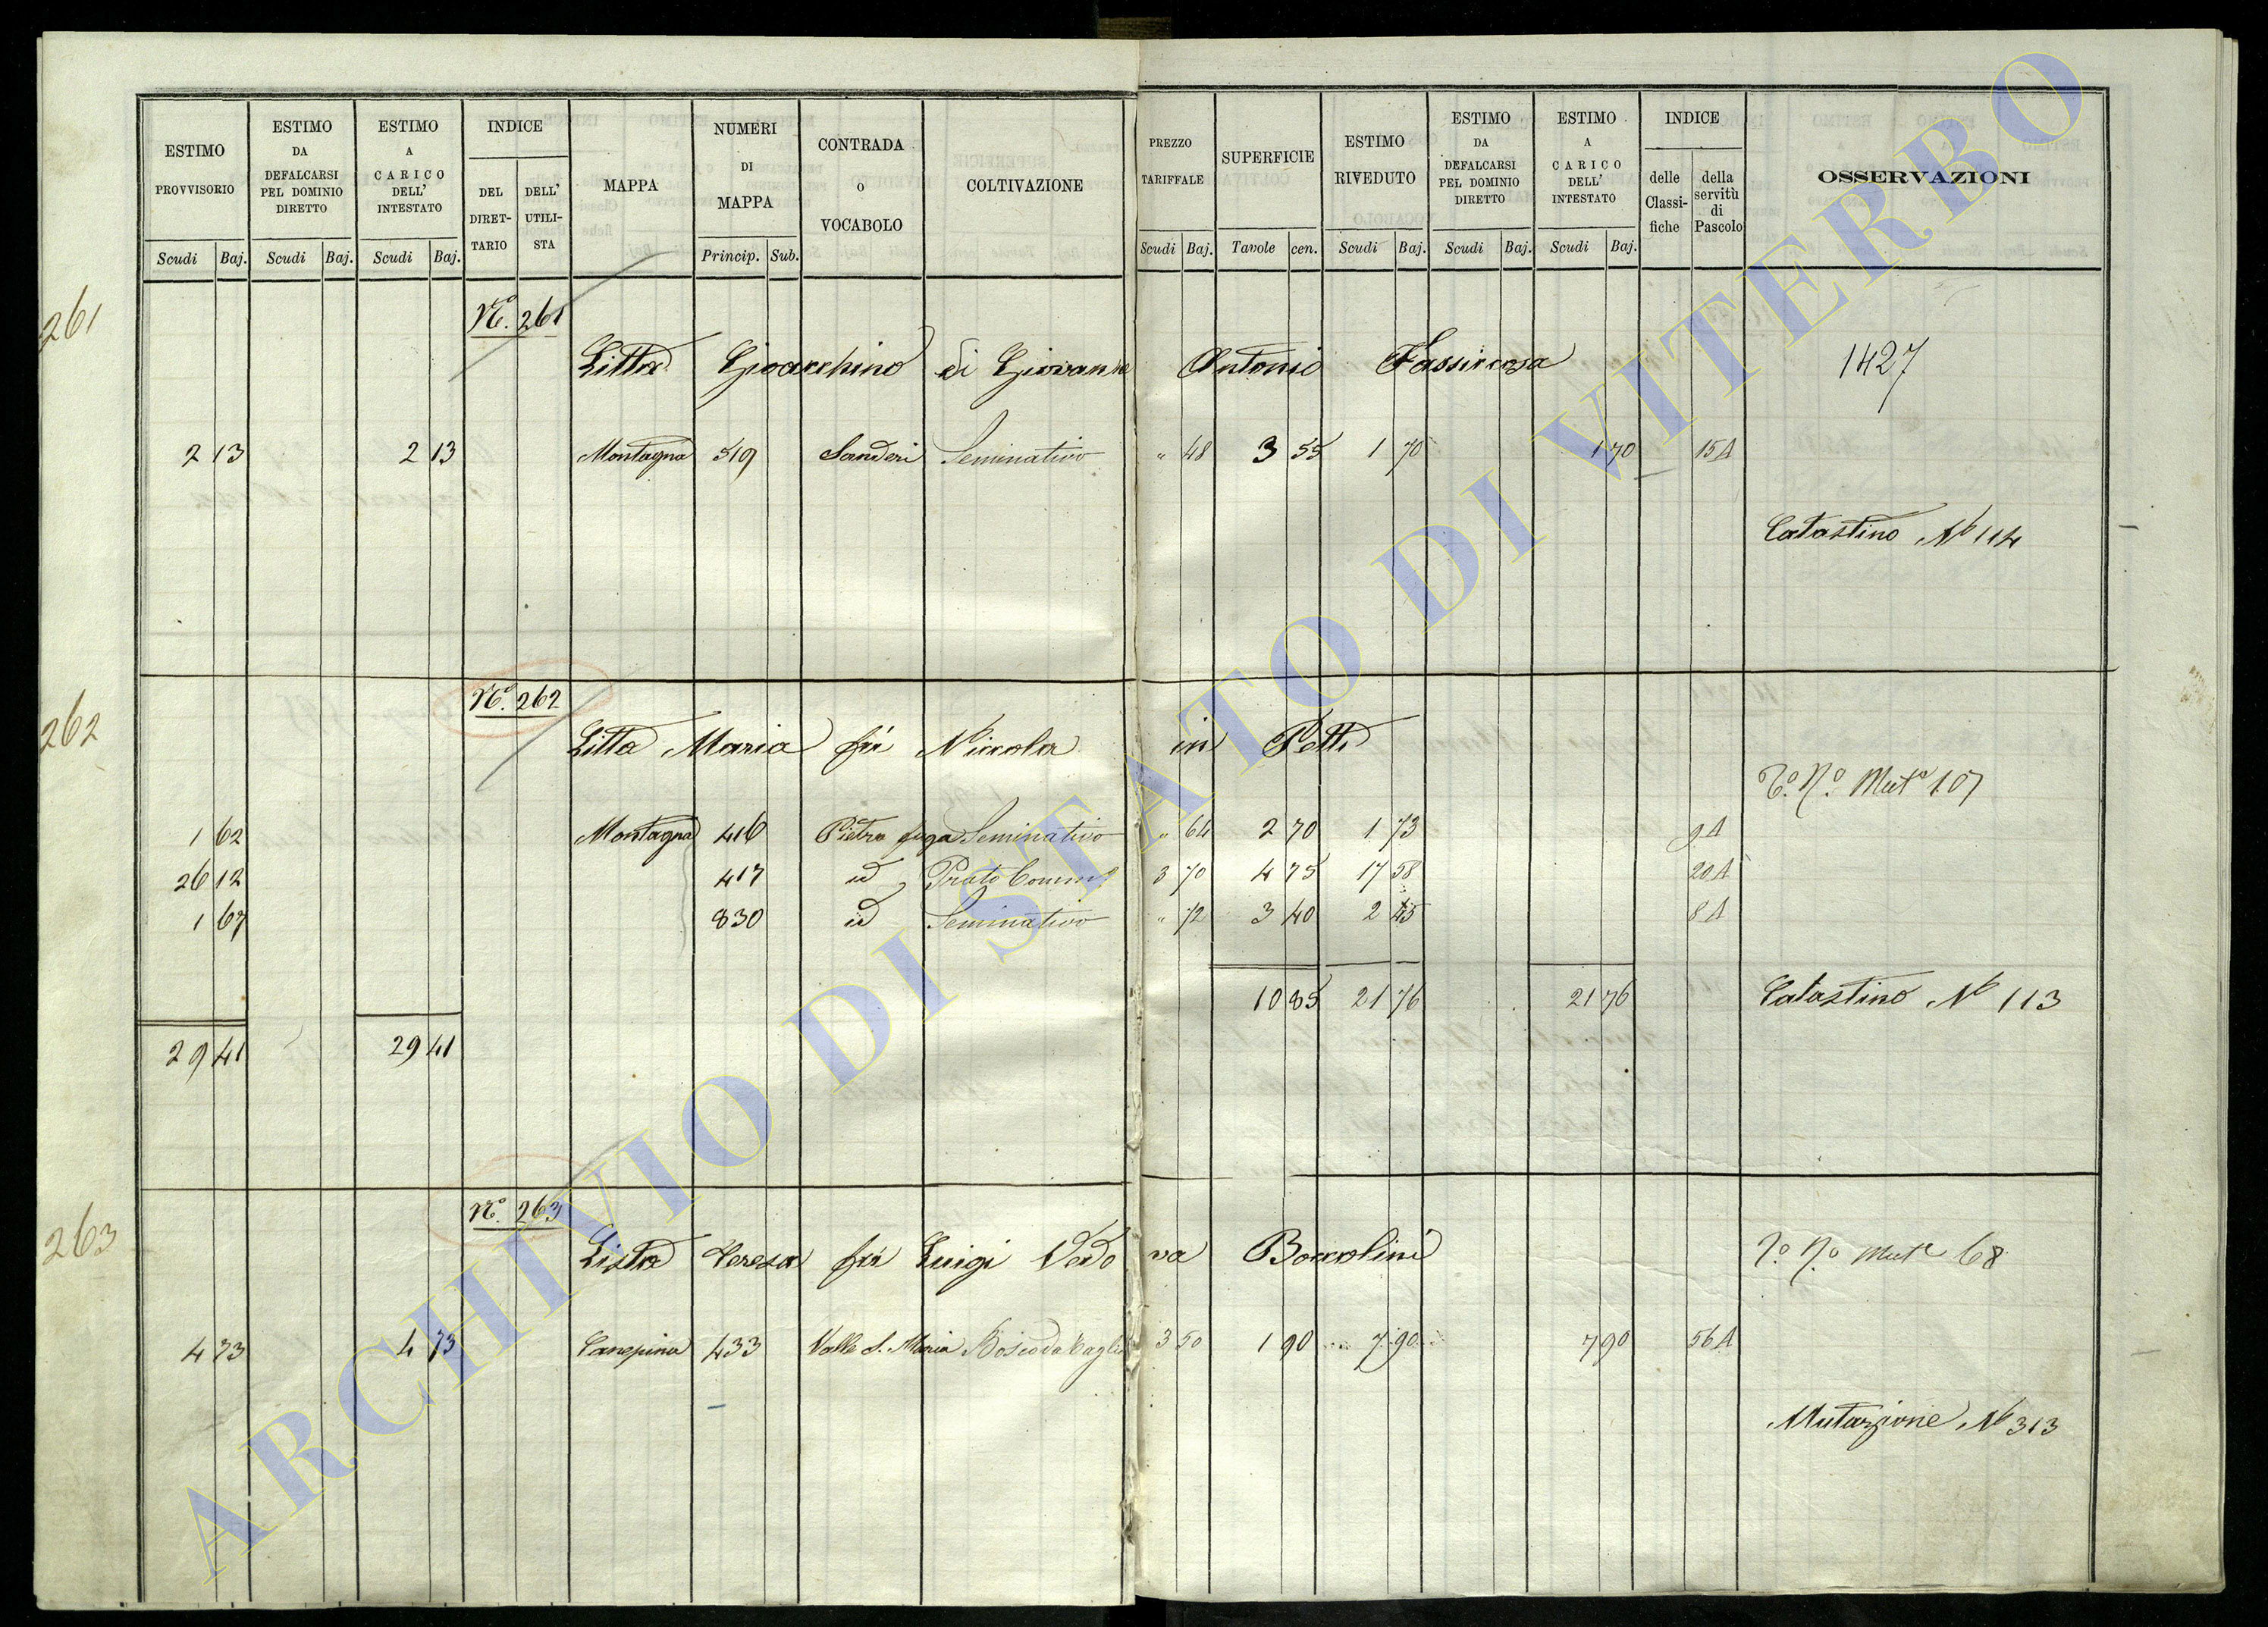 ESTIMO PROVVISORIO
Scudi Baj.
ESTIMO DA DEFALCARSI PEL DOMINIO DIRETTO
Scudi Baj.
ESTIMO A CARICO DELL' INTESTATO
Scudi Baj.
INDICE
DEL DIRET-TARIO
DELL' UTILI-STA
MAPPA
NUMERI DI MAPPA
Princip. Sub.
CONTRADA O VOCABOLO
COLTIVAZIONE
PREZZO TARIFFALE
Scudi Baj.
SUPERFICIE
Tavole cen.
ESTIMO RIVEDUTO
Scudi Baj.
ESTIMO DA DEFALCARSI PEL DOMINIO DIRETTO
Scudi Baj.
ESTIMO A CARICO DELL' INTESTATO
Scudi Baj.
INDICE
delle Classi-fiche
della servitù di Pascolo
OSSERVAZIONI
261
Nº. 261
Litta Gioacchino di Giovanni Antonio 1427
2 13 2 13 Montagna 519 Sanderi Seminativo " 48 3 55 1 70 1 70 15A
Catastino Nº 114
262
Nº. 262
Litta Maria fu Niccola in Petti
Nº Mutª 107
1 62 Montagna 416 Pietra fuga Seminativo " 64 2 70 1 73 9A
26 12 417 id Prato 3 70 4 75 17 58 20A
1 67 830 id Seminativo " 72 3 40 2 45 8A
10 85 21 76 21 76 Catastino Nº 113
29 41 29 41
263
Nº. 263
Lista Teresa fu Luigi Vedova Boccolini Nº Mutª 68
4 73 4 73 Canepina 433 Valle S. Maria Bosco da Taglio 3 50 1 90 7 90 7 90 56A
Mutazione Nº 313
ARCHIVIO DI STATO DI VITERBO